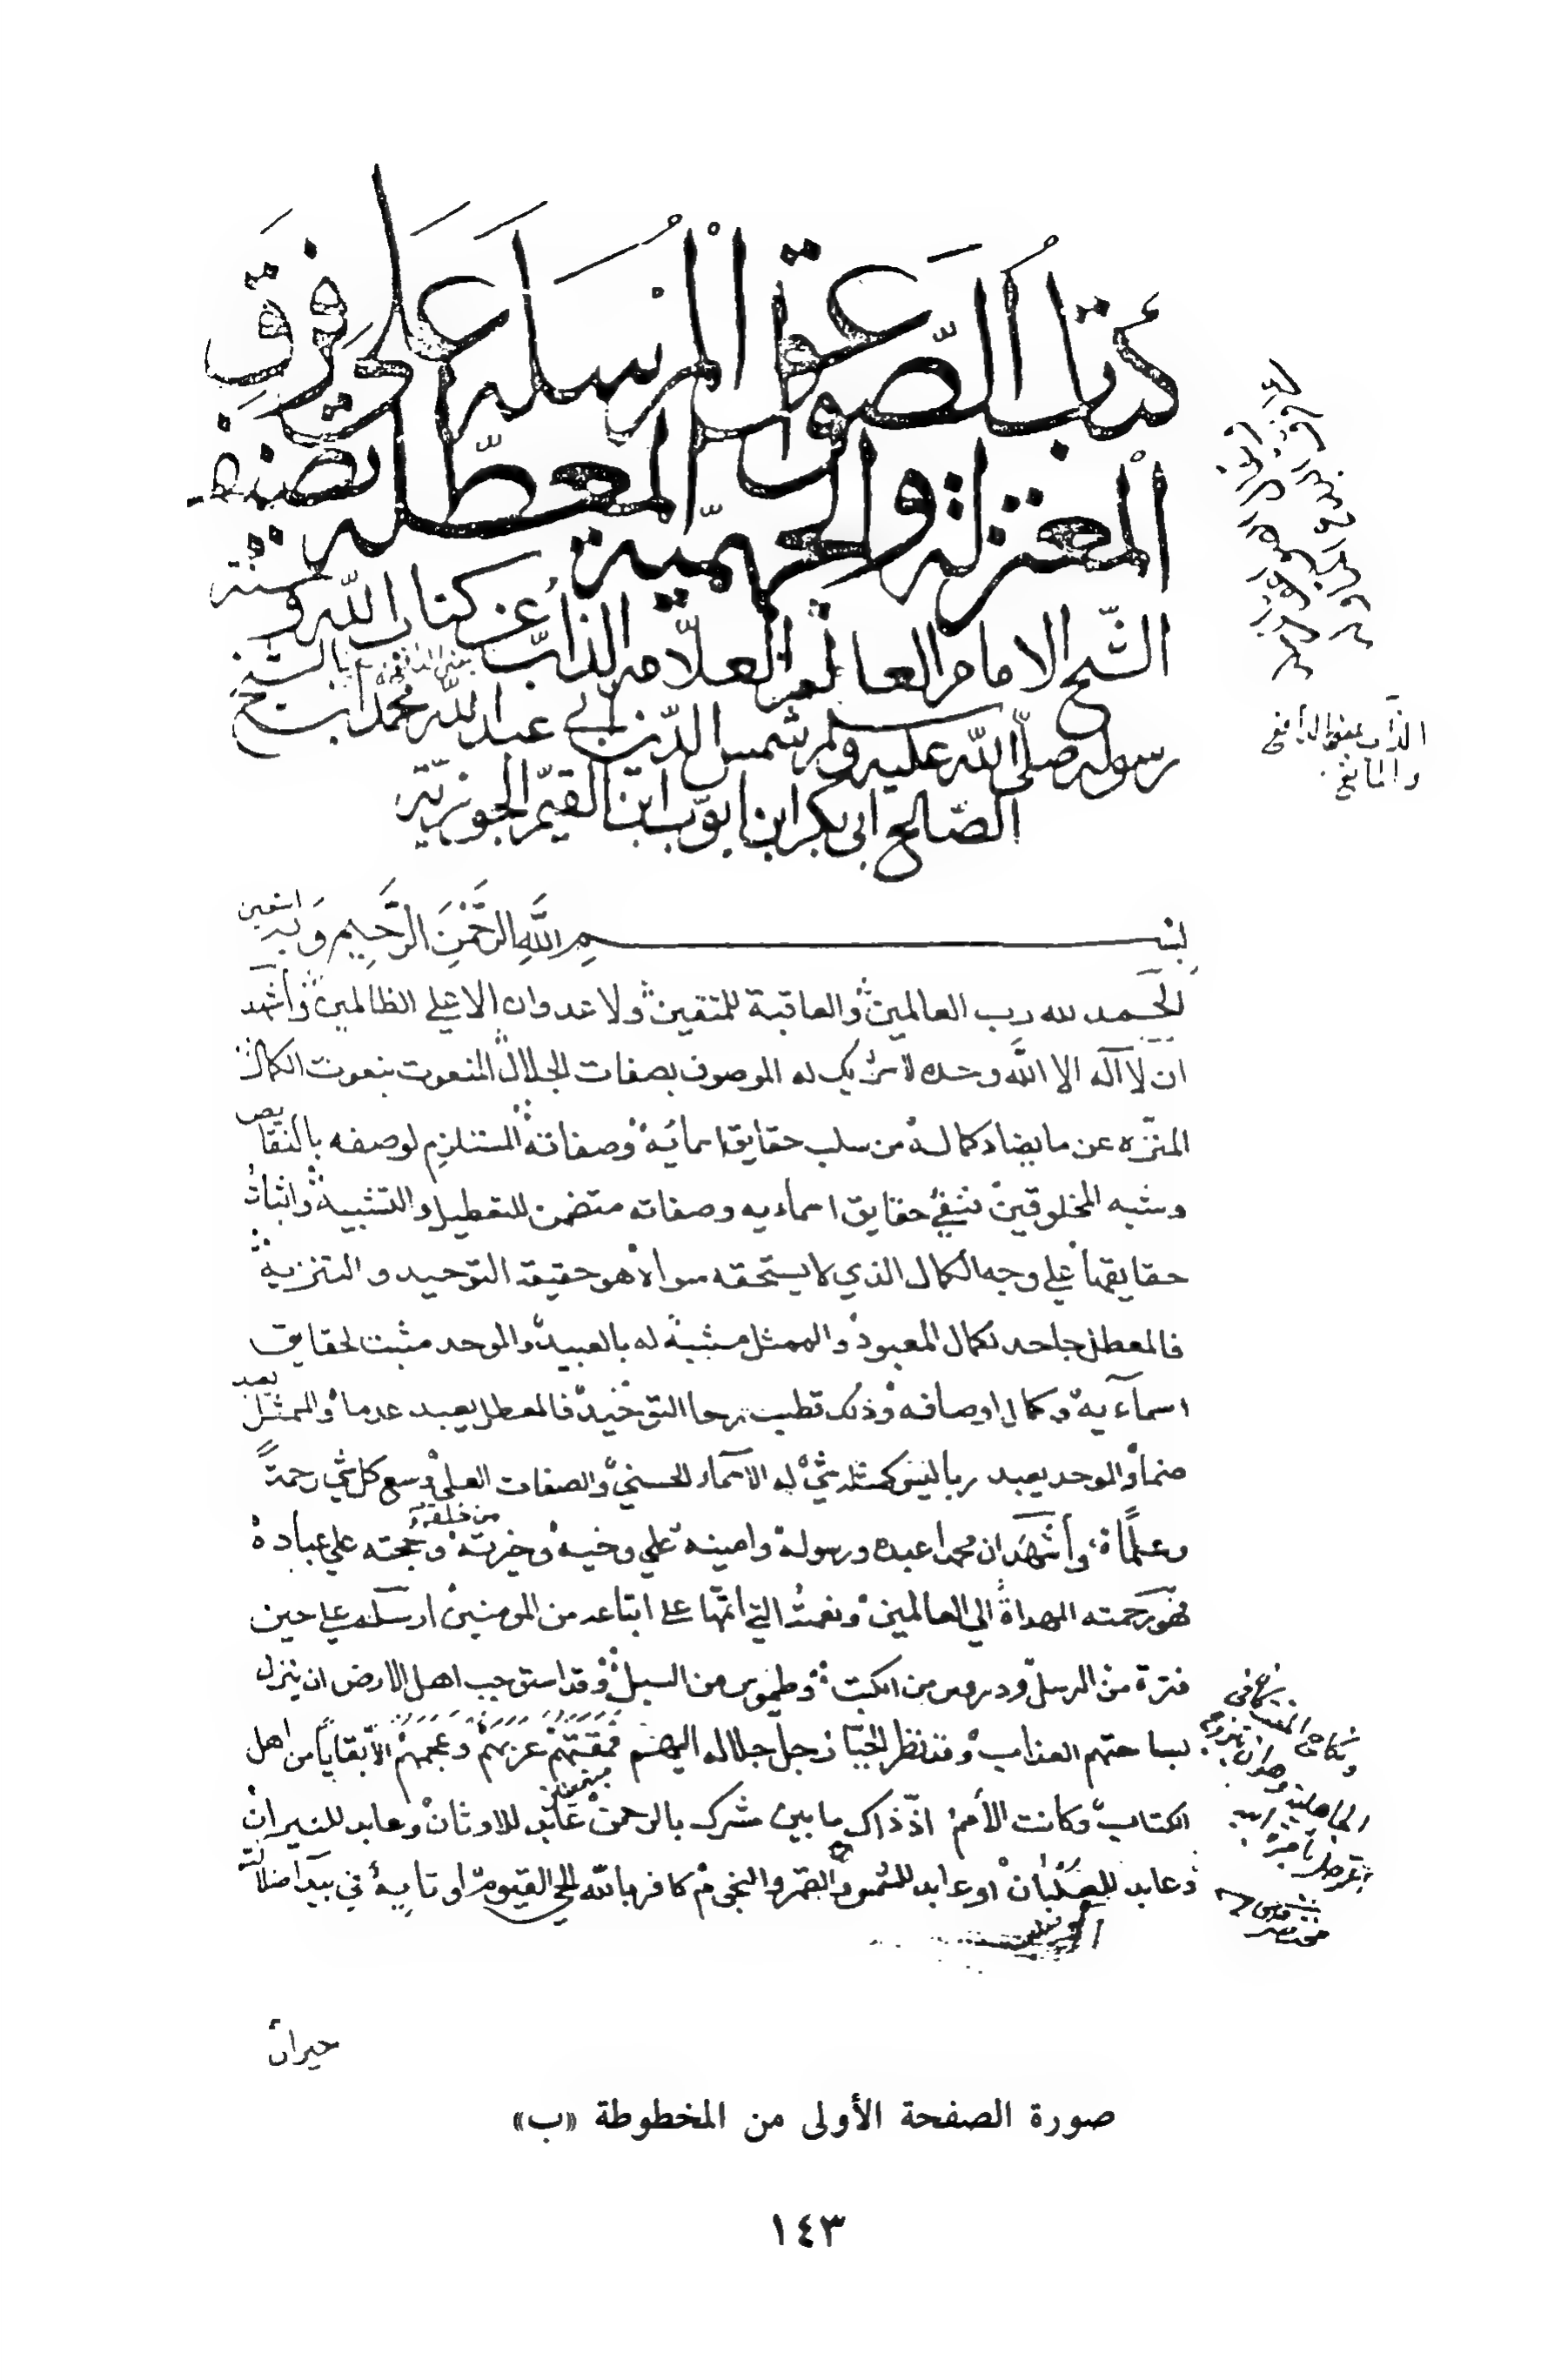 كتاب الصواعق المرسلة على فرق
المعتزلة والجهمية المعطلة تصنيف
الشيخ الامام العالم العلامة الذاب عن كتاب الله وسنة
رسوله صلى الله عليه وسلم شمس الدين ابي عبد الله محمد ابن الشيخ
الصالح ابي بكر ابن ايوب ابن القيم الجوزية
الذاب بمعنى الدافع
والمانع
بسم الله الرحمن الرحيم وبه استعين
الحمد لله رب العالمين والعاقبة للمتقين ولا عدوان الا على الظالمين وأشهد
ان لا آله الا الله وحده لا شريك له الموصوف بصفات الجلال المنعوت بنعوت الكمال
المنزه عن ما يضاد كماله من سلب حقايق اسمائه وصفاته المستلزم لوصفه بالنقايص
وشبه المخلوقين فنفي حقايق اسمايه وصفاته متضمن للتعطيل والتشبيه واثبات
حقايقها علي وجه الكمال الذي لا يستحقه سواه هو حقيقة التوحيد والتنزيه
فالمعطل جاحد لكمال المعبود والممثل مشبه له بالعبيد والموحد مثبت لحقايق
اسمآيه وكمال اوصافه وذلك قطب رحا التوحيد فالمعطل يعبد عدما والممثل يعبد
صنما والموحد يعبد ربا ليس كمثله شي له الاسماء الحسني والصفات العلي وسع كل شي رحمة
وعلما وأشهد ان محمدا عبده ورسوله وامينه علي وحيه وخيرته من خلقه وحجته علي عباده
فهو رحمته المهداة الي العالمين ونعمته التي اتمها على اتباعه من المومنين ارسله على حين
فترة من الرسل ودروس من الكتب وطموس من السبل وقد استوجب اهل الارض ان ينزل
بساحتهم العذاب وقد نظر الجبار جل جلاله اليهم فمقتهم عربهم وعجمهم الا بقايا من اهل
الكتاب وكانت الأمم اذ ذاك ما بين مشرك بالرحمن عابد للاوثان وعابد للنيران
وعابد للصلبان او عابد للشمس والقمر والنجوم كافر بالله الحي القيوم او تايه في بيدا ضلالته
حيران
صورة الصفحة الأولى من المخطوطة «ب»
١٤٣